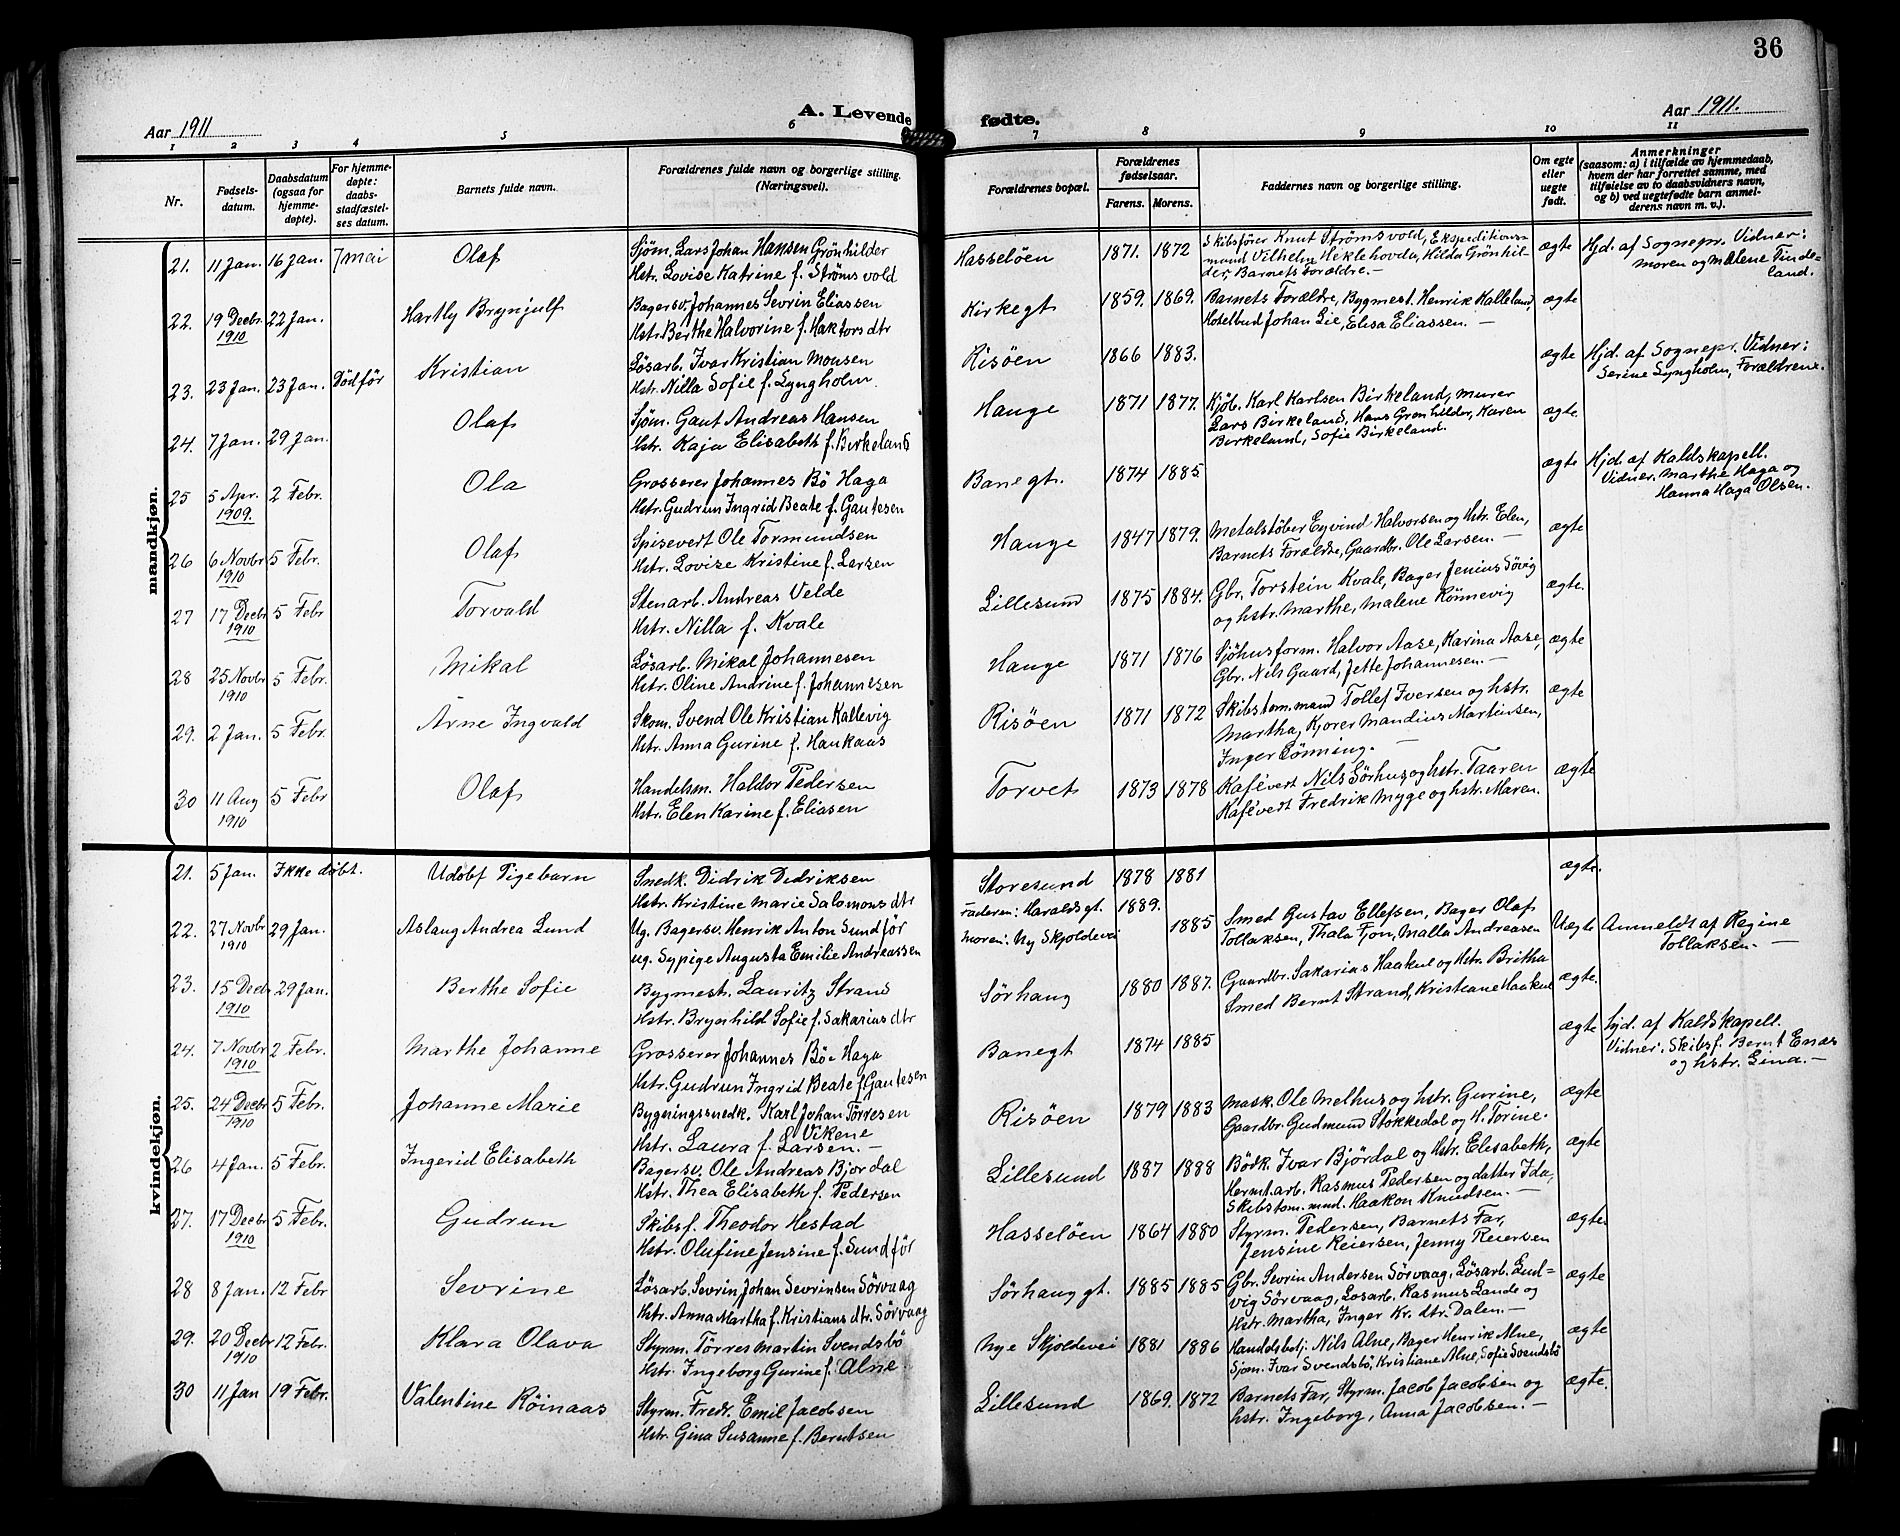 36
Aar 1911
A. Levende
fødte.
Aar 1911.
1 2 3 4 5 6 7 8 9 10 11
Nr.
Fødsels-
datum.
Daabsdatum
(ogsaa for
hjemme-
døpte).
For hjemme-
døpte:
daabs-
stadfæstel-
ses datum.
Barnets fulde navn.
Forældrenes fulde navn og borgerlige stilling.
(Næringsvei).
Forældrenes bopæl.
Forældrenes
fødselsaar.
Farens. Morens.
Faddernes navn og borgerlige stilling.
Om egte
eller
uegte
født.
Anmerkninger
(saasom: a) i tilfælde av hjemmedaab,
hvem der har forrettet samme, med
tilføielse av to daabsvidners navn,
og b) ved uegtefødte barn anmel-
derens navn m. v.).
mandkjøn.
21. 11 Jan. 16 Jan. 7 mai Olaf
Sjøm. Lars Johan Hansen Grønhilder
Hstr. Lovise Katrine f. Strømsvold
Hasseløen 1871. 1872
Skibsfører Knut Strømsvold, Ekspeditions-
mand Vilhelm Heklehovda, Hilda Grønhil-
der, Barnets Forældre.—
ægte
Hjd. af Sognepr. Vidner:
moren og malene Tinde-
land.
22. 19 Decbr. 1910 22 Jan. Hartly Brynjulf
Bagersv. Johannes Sevrin Eliassen
Hstr. Berthe Halvorine f. Haktorsdtr
Kirkegt 1859. 1869.
Barnets Forældre, Bygmest. Henrik Kalleland,
Hotelbud Johan Lie, Elisa Eliassen. —
ægte
23. 23 Jan. 23 Jan. Død før Kristian
Løsarb. Ivar Kristian Monsen
Hstr. Nilla Sofie f. Lyngholm.
Risøen 1866 1883.
ægte
Hjd. af Sognepr. Vidner:
Serine Lyngholm, Forældrene.
24. 7 Jan. 29 Jan. Olaf
Sjøm. Gaut Andreas Hansen
Hstr. Kaja Elisabeth f. Birkeland
Hauge 1871 1877.
Kjøb. Karl Karlsen Birkeland, murer
Lars Birkeland, Hans Grønhilder, Karen
Birkeland, Sofie Birkeland.
ægte
25 5 Apr. 1909. 2 Febr. Ola
Grosserer Johannes Bö Haga
Hstr. Gudrun Ingrid Beate f. Gautesen
Banegt. 1874 1885
ægte
Hjd. af Kaldskapell.
Vidner. marthe Haga og
Hanna Haga Olsen.
26 6 Novbr 1910 5 Febr. Olaf
Spisevert Ole Tormundsen
Hstr. Lovise Kristine f. Larsen
Hauge 1847 1879.
Metalstøber Eyvind Halvorsen og hstr. Elen,
Barnets Forældre, Gaardbr. Ole Larsen. —
ægte
27 17 Decbr 1910 5 Febr Torvald
Stenarb. Andreas Velde
Hstr. Nilla f. Kvale
Lillesund 1875 1884.
Gbr. Torstein Kvale, Bager Jenius Søvig
og hstr. Marthe, Malene Rönnevig
ægte.
28 25 Novbr 1910 5 Febr. Mikal
Løsarb. Mikal Johannesen
Hstr. Oline Andrine f. Johannesen
Hauge 1871 1876
Sjøhusform. Halvor Aase, Karina Aase,
Gbr. Nils Guard, Jette Johannesen. —
ægte
29. 2 Jan. 5 Febr. Arne Ingvald
Skom. Svend Ole Kristian Kallevig
Hstr. Anna Gurine f. Haukaas
Risøen 1871 1872
Skibstøm.mand Tollef Iversen og hstr.
Martha, Kjører Mandius Martinsen,
Inger Lönning. —
ægte
30 11 Aug 1910 5 Febr Olaf
Handelsm. Haldor Pedersen
Hstr. Elen Karine f. Eliasen
Torvet 1873 1878
Kafévert Nils Sørhus og hstr. Taaren
Kafévert Fredrik Myge og hstr. Maren.
ægte
kvindekjøn.
21. 5 Jan. Ikke døbt. Udøbt Pigebarn
Snedk. Didrik Didriksen
Hstr. Kristine Marie Salomonsdtr
Storesund 1878 1881
ægte.
22. 27 Novbr 1910 29 Jan. Aslaug Andrea Lund
Ug. Bagersv. Henrik Anton Sundfør
ug. Sypige Augusta Emilie Andreassen
Faderen: Haraldsgt. 1889.
Moren: Ny Skjoldevei 1885
Smed Gustav Ellefsen, Bager Olaf
Tollaksen, Thala Fjon, Malla Andreasen
Uægte
Anmeldt af Regine
Tollaksen. —
23. 15 Decbr 1910 29 Jan. Berthe Sofie
Bygmestr. Lauritz Strand
Hstr. Brynhild Sofie f. Sakariasdtr
Sørhaug 1880 1887.
Gaardbr. Sakarias Haakul og Hstr. Britha
Smed Bernt Strand, Kristiane Haakul
ægte.
24. 7 Novbr 1910 2 Febr. Marthe Johanne
Grosserer Johannes Böe Haga
Hstr. Gudrun Ingrid Beate f. Gautesen
Banegt 1874 1885
ægte
Hjd. af Kaldskapell.
Vidner: Skibsf. Bernt Enæs
og hstr. Lina. —
25. 24 Decbr 1910 5 Febr. Johanne Marie
Bygeringssnedk. Karl Johan Törresen
Vikene
Hstr. Laura f. Larsen. —
Risøen 1879 1883
Mask. Ole Melhus og hstr. Gurine,
Gaardbr. Gudmund Stokkedal og H. Torine.
ægte
26 4 Jan. 5 Febr. Ingerid Elisabeth
Bagersv. Ole Andreas Bjordal
Hstr. Thea Elisabeth f. Pedersen
Lillesund 1887 1888
Bødk. Ivar Bjørdal og Hstr. Elisabeth,
Hermt.arb. Rasmus Pedersen og datter Ida,
Skibstøm.mnd. Haakon Knudsen. —
ægte
27. 17 Decbr 1910 5 Febr. Gudrun
Skibsf. Theodor Hestad
Hstr. Olufine Jensine f. Sundfør
Hasseløen 1864 1880
Styrm. Pedersen, Barnets Far,
Jensine Reiersen, Jenny Reiersen
ægte.
28 8 Jan. 12 Febr Sevrine
Løsarb. Sevrin Johan Sevrinsen Sørvaag
Hstr. Anna Martha f. Kristiansdtr. Sørvaag
Sørhauggt. 1885 1885
Gbr. Sevrin Andersen Sørvaag, Løsarb. Lud-
vig Sørvaag, Løsarb. Rasmus Lande og
Hstr. Martha, Inger Kr. dtr. Dalen. —
ægte
29. 20 Decbr 1910 12 Febr. Klara Olava
Styrm. Törres Martin Svendsbö
Hstr. Ingeborg Gurine f. Alne
Nye Skjoldevei 1881 1886
Handelsbetj. Nils Alne, Bager Henrik Alne,
Sjøm. Ivar Svendsbö, Kristiane Alne, Sofie Svendsbö
ægte
30 11 Jan 19 Febr. Valentine Röinaas
Styrm. Fredr. Emil Jacobsen
Hstr. Gina Susanne f. Berntsen
Lillesund 1869. 1872
Barnets Far, Styrm. Jacob Jacobsen og
hstr. Ingeborg, Anna Jacobsen. —
ægte.